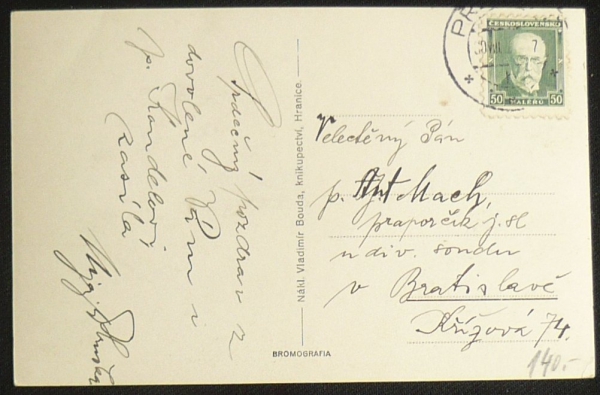 Srdečný pozdrav z
dovolené Vám i
p. Kandelovi
zasílá
Nákl. Vladimír Bouda, knihkupectví, Hranice.
BROMOGRAFIA
ČESKOSLOVENSKO
50 50
HALÉŘŮ
7
Velectěný Pán
p. Ant. Mach,
praporčík j. sl
u div. soudu
v Bratislavě
Křížová 74.
140.-